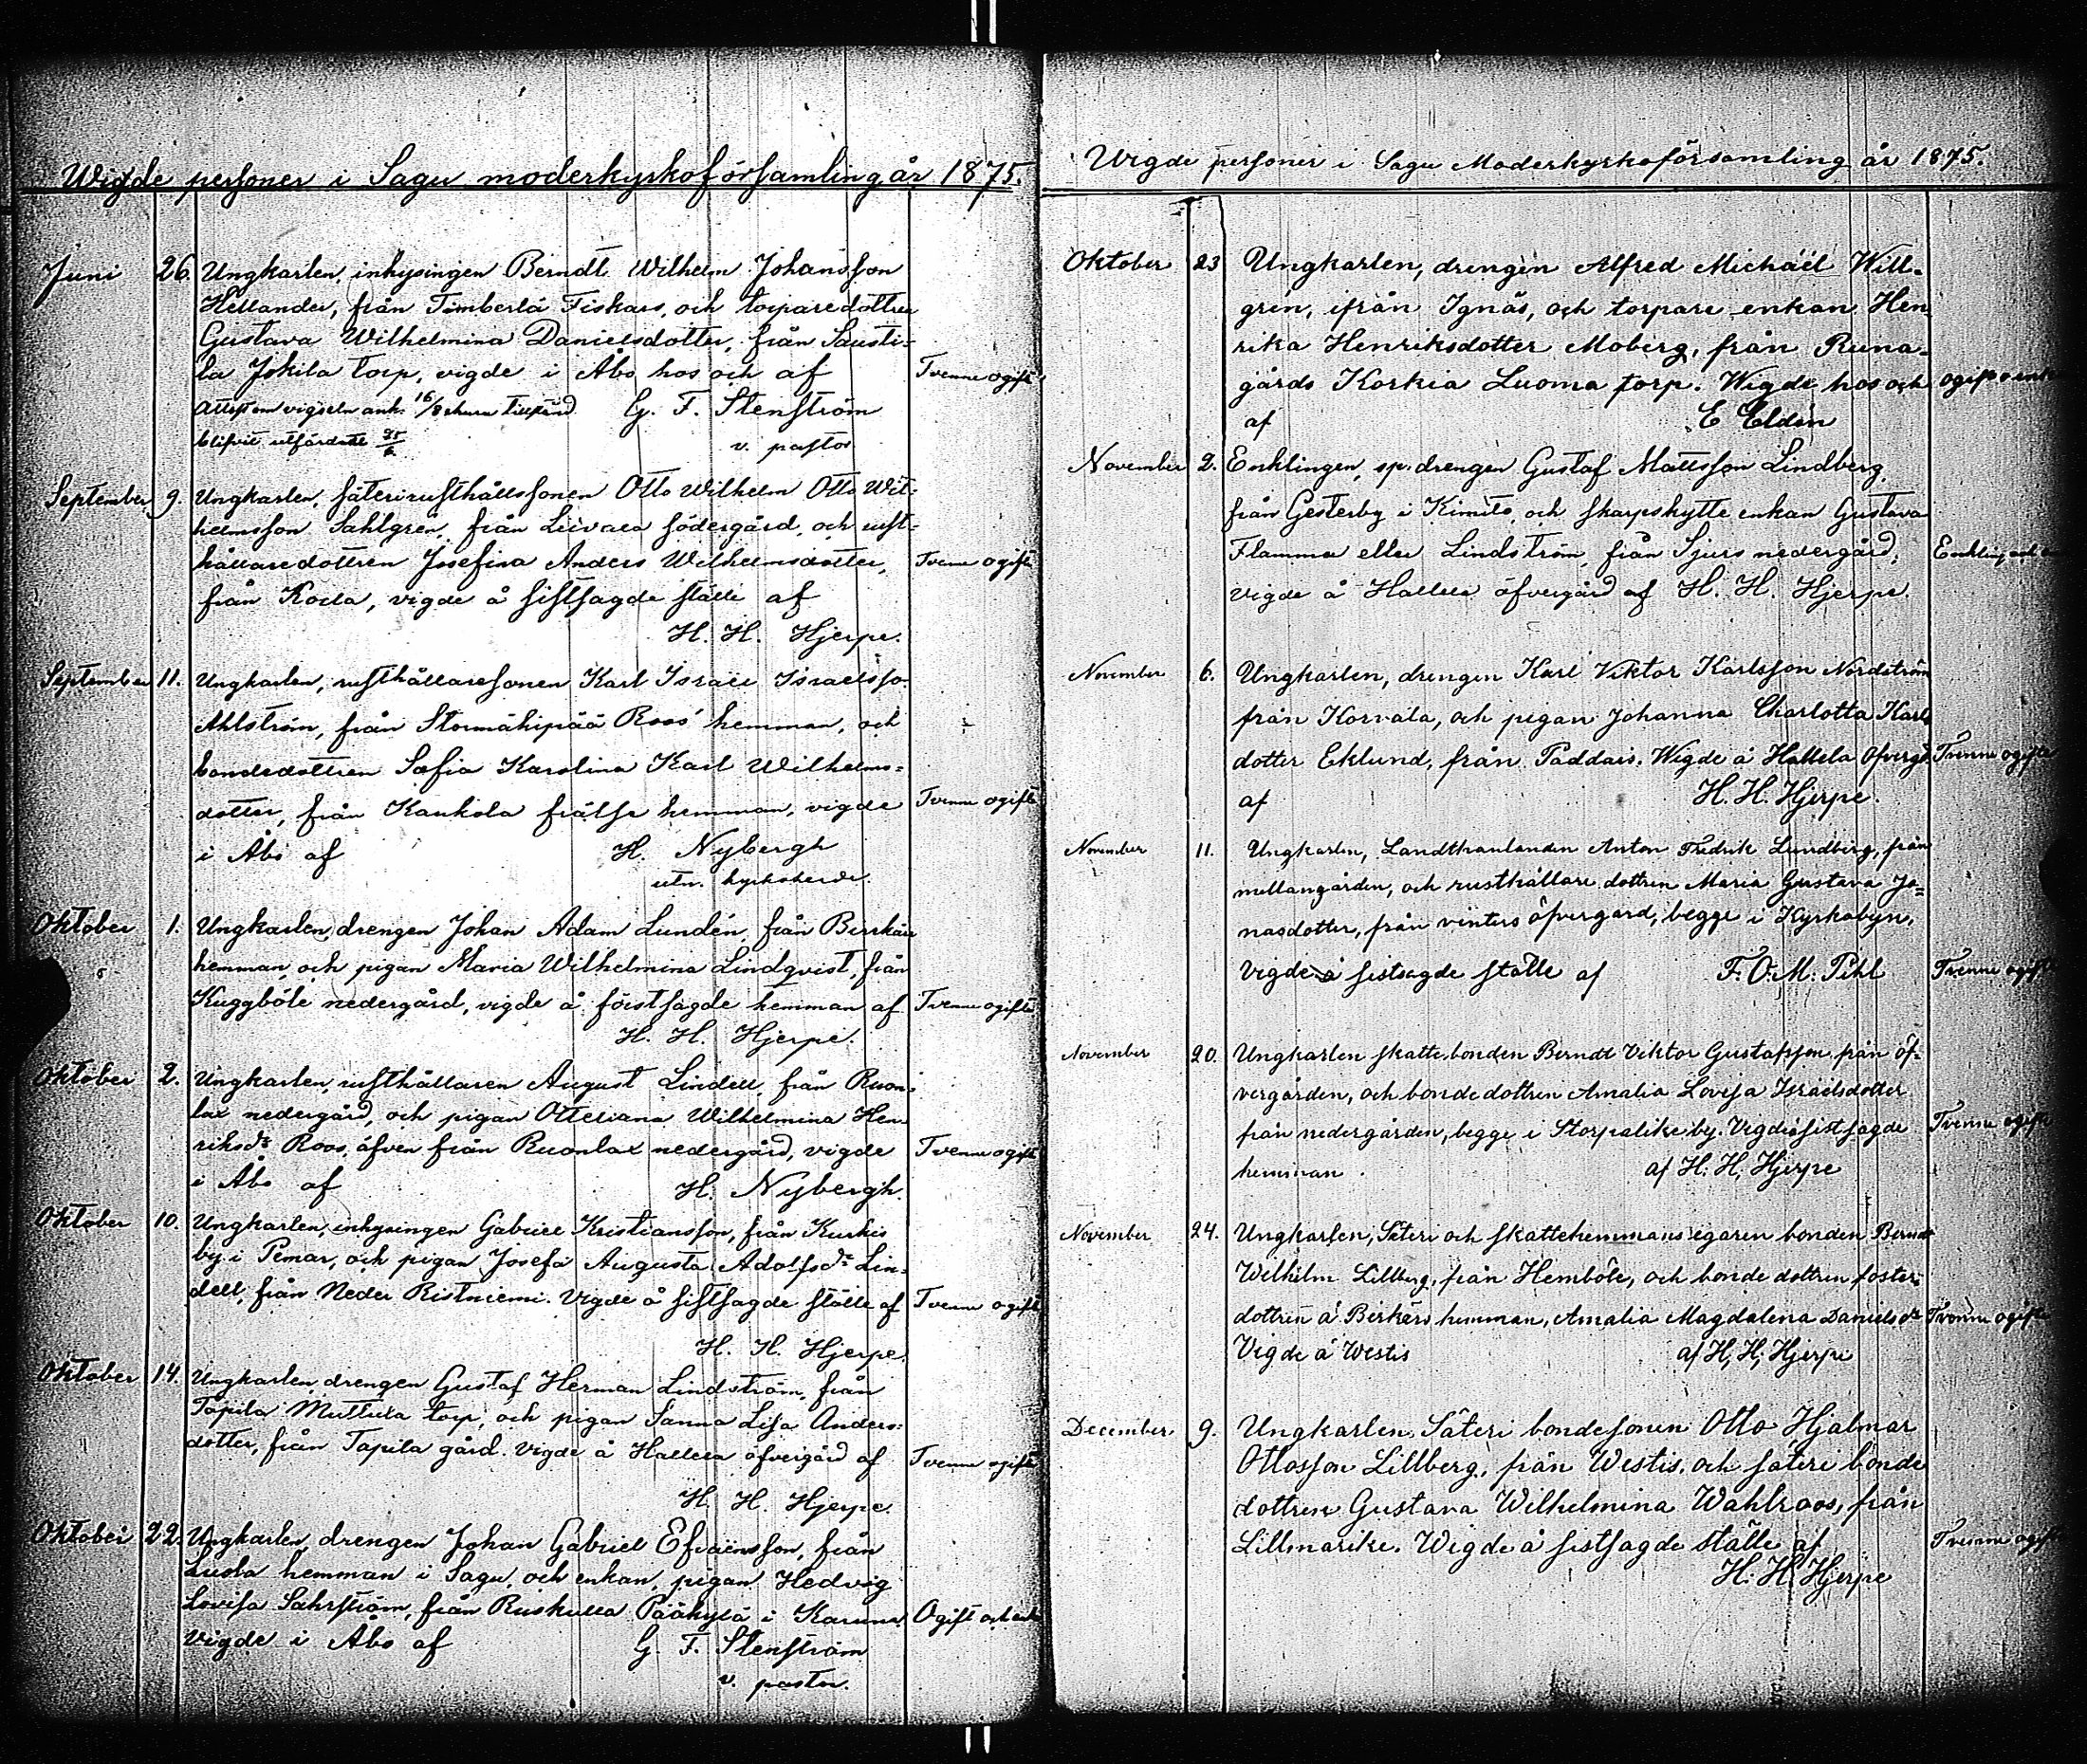 Wigde personer i Sagu moderkyrkoförsamling år 1875.
Juni 26. Ungkarlen, inhysingen Berndt Wilhelm Johansson
Hellander, från Timberlä Fiskars, och torparedottren
Gustava Wilhelmina Danielsdotter, från Sausti-
la Jokila torp, vigde i Åbo hos och af Tvenne ogifte
G. F. Stenström
blifvit utfärdadt
v. pastor
September 9. Ungkarlen, säterirusthållssonen Otto Wilhelm Otto Wil-
helmsson Sahlgrén, från Leivala södergård, och rust-
hållaredottren Josefina Anders Wilhelmsdotter, Tvenne ogifte
från Koila, vigde å sistsagde ställe af
H. H. Hjerpe.
September 11. Ungkarlen, rusthållaresonen Karl Israel Israelsso
Ahlström, från Stormähipää Roos hemman, och
bondedottren Sofia Karolina Karl Wilhelms-
dotter, från Kankola frälse hemman, vigde Tvenne ogifte
i Åbo af H. Nybergh
utn. kyrkoherde.
Oktober 1. Ungkarlen, drengen Johan Adam Lundén, från Birrkärr
hemman, och pigan Maria Wilhelmina Lindqvist, från
Kuggböle nedergård, vigde å förstsagde hemman af Tvenne ogifte
H. H. Hjerpe.
Oktober 2. Ungkarlen, rusthållaren August Lindell, från Ruon-
lax nedergård, och pigan Otteliana Wilhelmina Hen-
riksdr Roos, äfven från Ruonlax nedergård, vigde Tvenne ogifte
i Åbo af H. Nybergh.
Oktober 10. Ungkarlen, inhysingen Gabriel Kristiansson, från Kurkis
by i Pemar, och pigan Josefa Augusta Adolfsdr Lin-
dell, från Neder Ristniemi. Vigde å sistsagde ställe af Tvenne ogifte
H. H. Hjerpe.
Oktober 14. Ungkarlen, drengen Gustaf Herman Lindström, från
Tapila Muttula torp, och pigan Sanna Lisa Anders-
dotter, från Tapila gård. Vigde å Hallela öfvergård af Tvenne ogifte
H. H. Hjerpe.
Oktober 22. Ungkarlen, drengen Johan Gabriel Efraimsson, från
hemman i Sagu, och enkan, pigan Hedvig
Lovisa Sahrström, från Ruskulla Pääkylä i Karuna Ogift och enka
vigde i Åbo af G. F. Stenström
v. pastor.
Wigde personer i Sagu Moderkyrkoförsamling år 1875.
Oktober 23 Ungkarlen, drengen Alfred Michaël Will-
grén, ifrån Ignäs, och torpare enkan Hen-
rika Henriksdotter Moberg, från Runa-
gårds Korkia Luoma torp. Wigde hos och ogift o enka
af E Eldén
November 2. Enklingen, sp. drengen Gustaf Mattsson Lindberg,
från Gesterby i Kimito, och skarpskytte enkan Gustava
Flamma eller Lindström, från Sjurs nedergård, Enkling och
vigde å Hallela öfvergård af H. H. Hjerpe.
November 6. Ungkarlen, drengen Karl Viktor Karlsson Nordström
från Korvala, och pigan Johanna Charlotta Karls
dotter Eklund, från Paddais. Wigde å Hallela öfvergd Tvenne ogifte
af H. H. Hjerpe.
November 11. Ungkarlen, Landthanlanden Anton Fredrik Lundberg, från
mellangården, och rusthållare dottren Maria Gustava Jo-
nasdotter, från vinters öfvergård, begge i Kyrkobyn,
Vigde å sistsagde ställe af F. O. M. Pihl Tvenne ogifte
November 20. Ungkarlen skatte bonden Berndt Viktor Gustafsson från öf-
vergården, och bonde dottren Amalia Lovisa Israelsdotter
från nedergården, begge i Storpalike by. Vigde å sistsagde Tvenne ogifte
hemman. af H. H. Hjerpe
November 24. Ungkarlen, Säteri och skattehemmans egaren bonden Berndt
Wilhelm Lillberg, från Hemböle, och bonde dottren foster-
dottren å Birkärs hemman, Amalia Magdalena Danielsdr Tvenne ogifte
Vigde å Westis af H. H. Hjerpe
December 9. Ungkarlen Säteri bondesonen Otto Hjalmar
Ottosson Lillberg, från Westis, och säteri bonde
dottren Gustava Wilhelmina Wahlroos, från
Lillmarike. Wigde å sistsagde ställe af Tvenne ogifte
H. H. Hjerpe